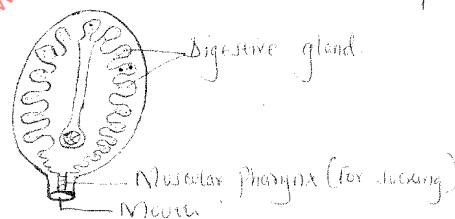 Digestive gland.
Muscular Pharynx (for sucking)
Mouth